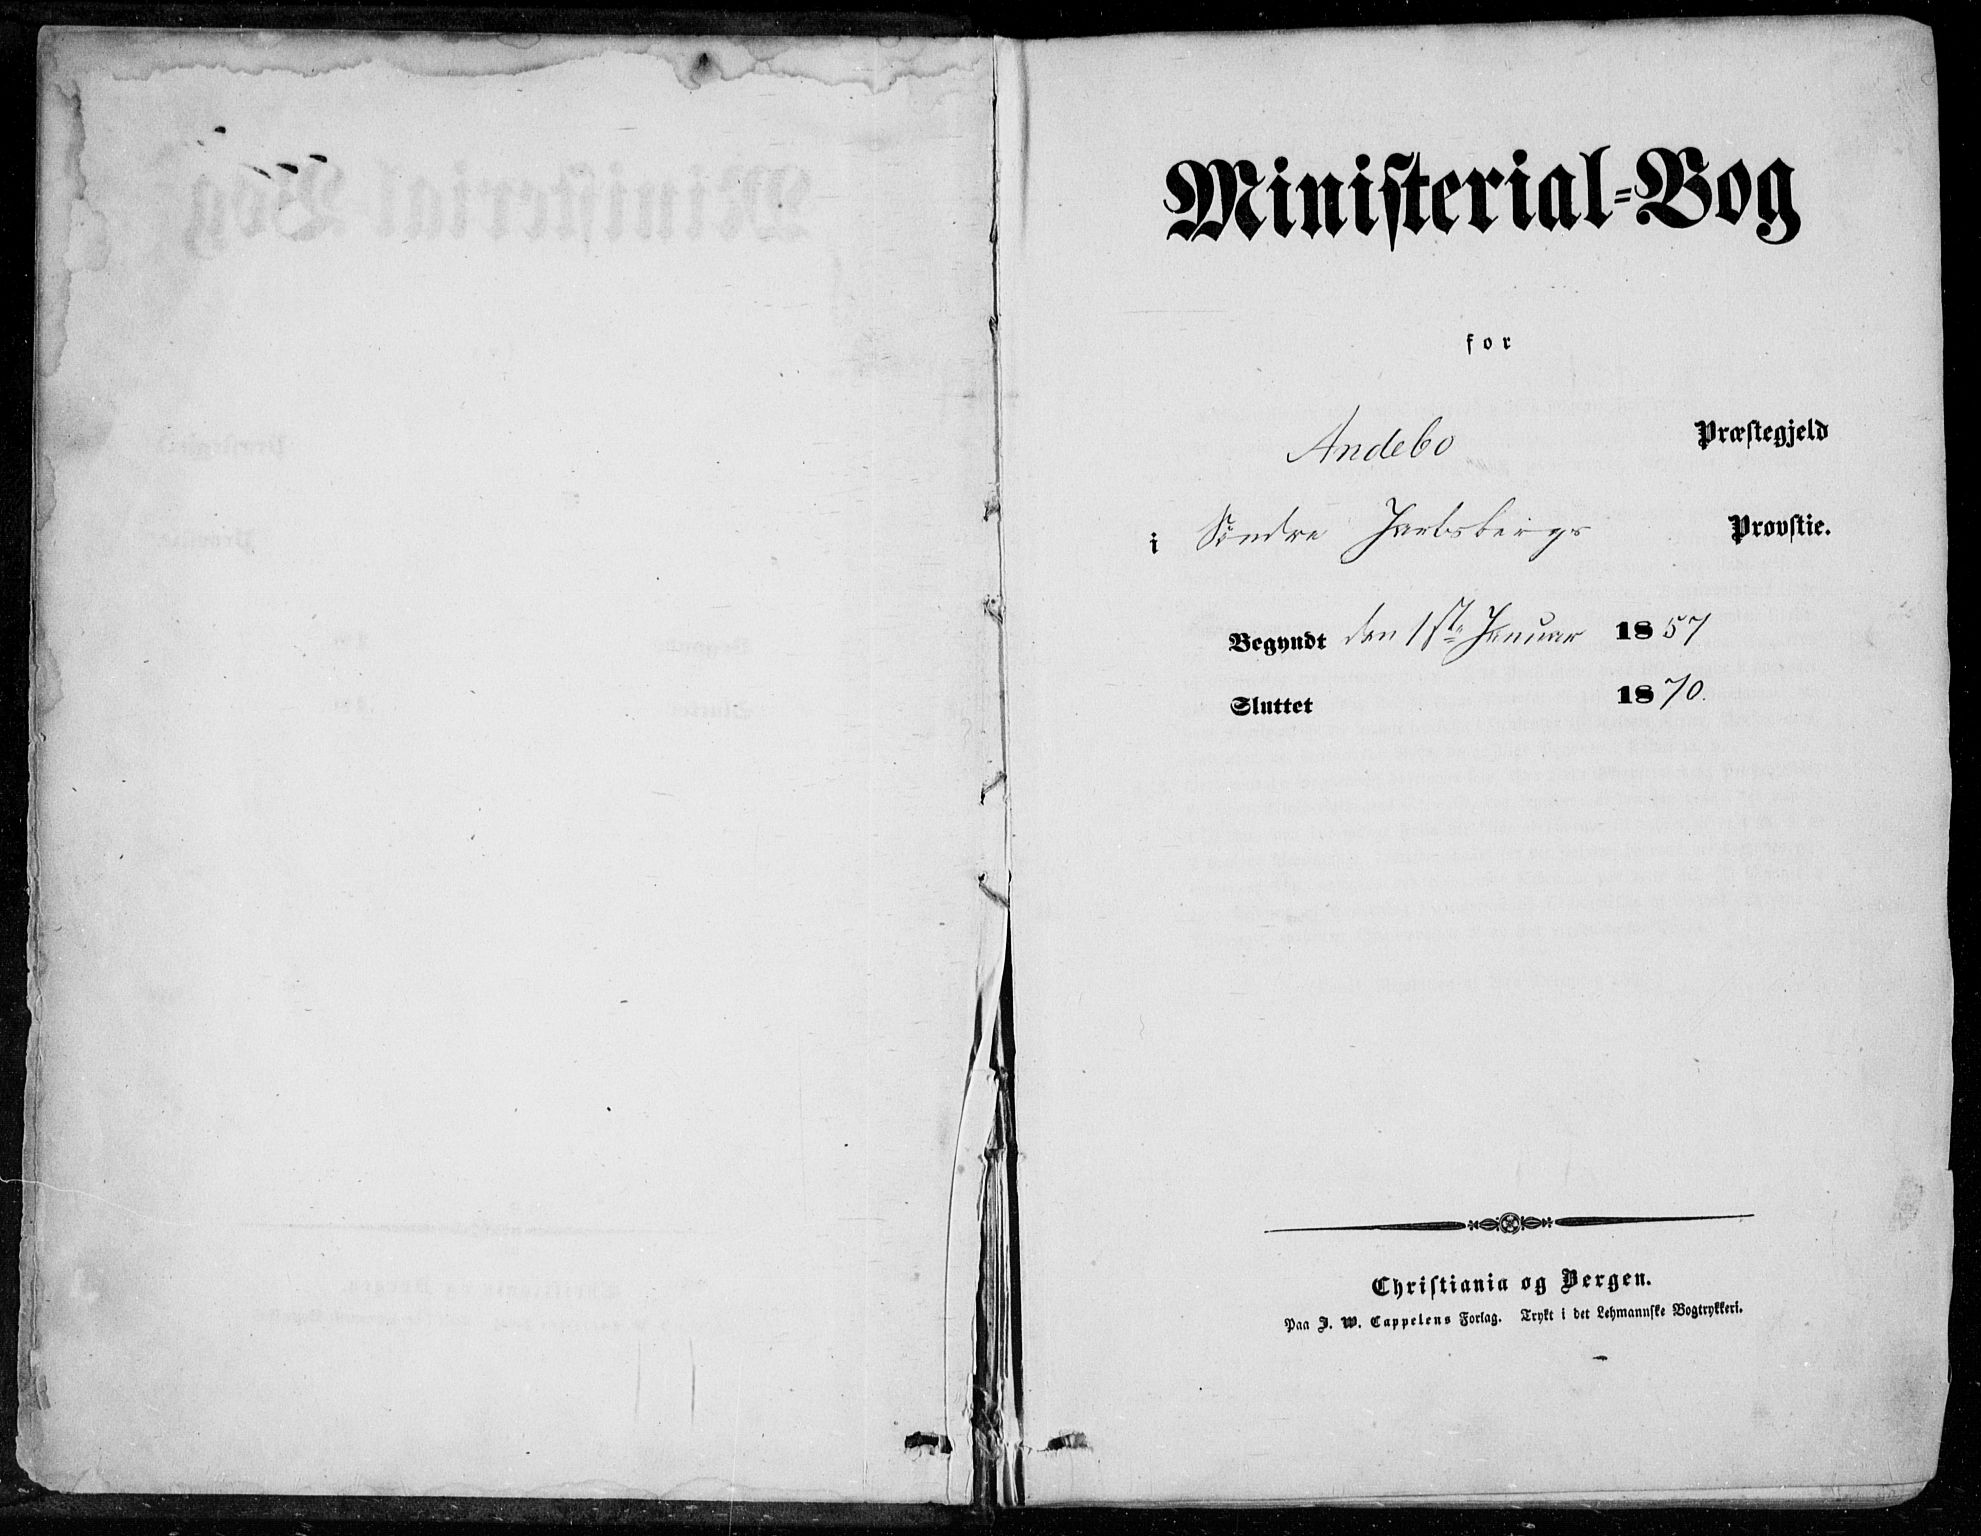 Ministerial-Bog
for
Andebo Præstegjeld
i Søndre Jarlsbergs Provstie.
Begyndt den 1ste Januar 1857
Sluttet 1870.
Christiania og Bergen.
Paa J. W. Cappelens Forlag. Trykt i det Lehmannske Bogtrykkeri.